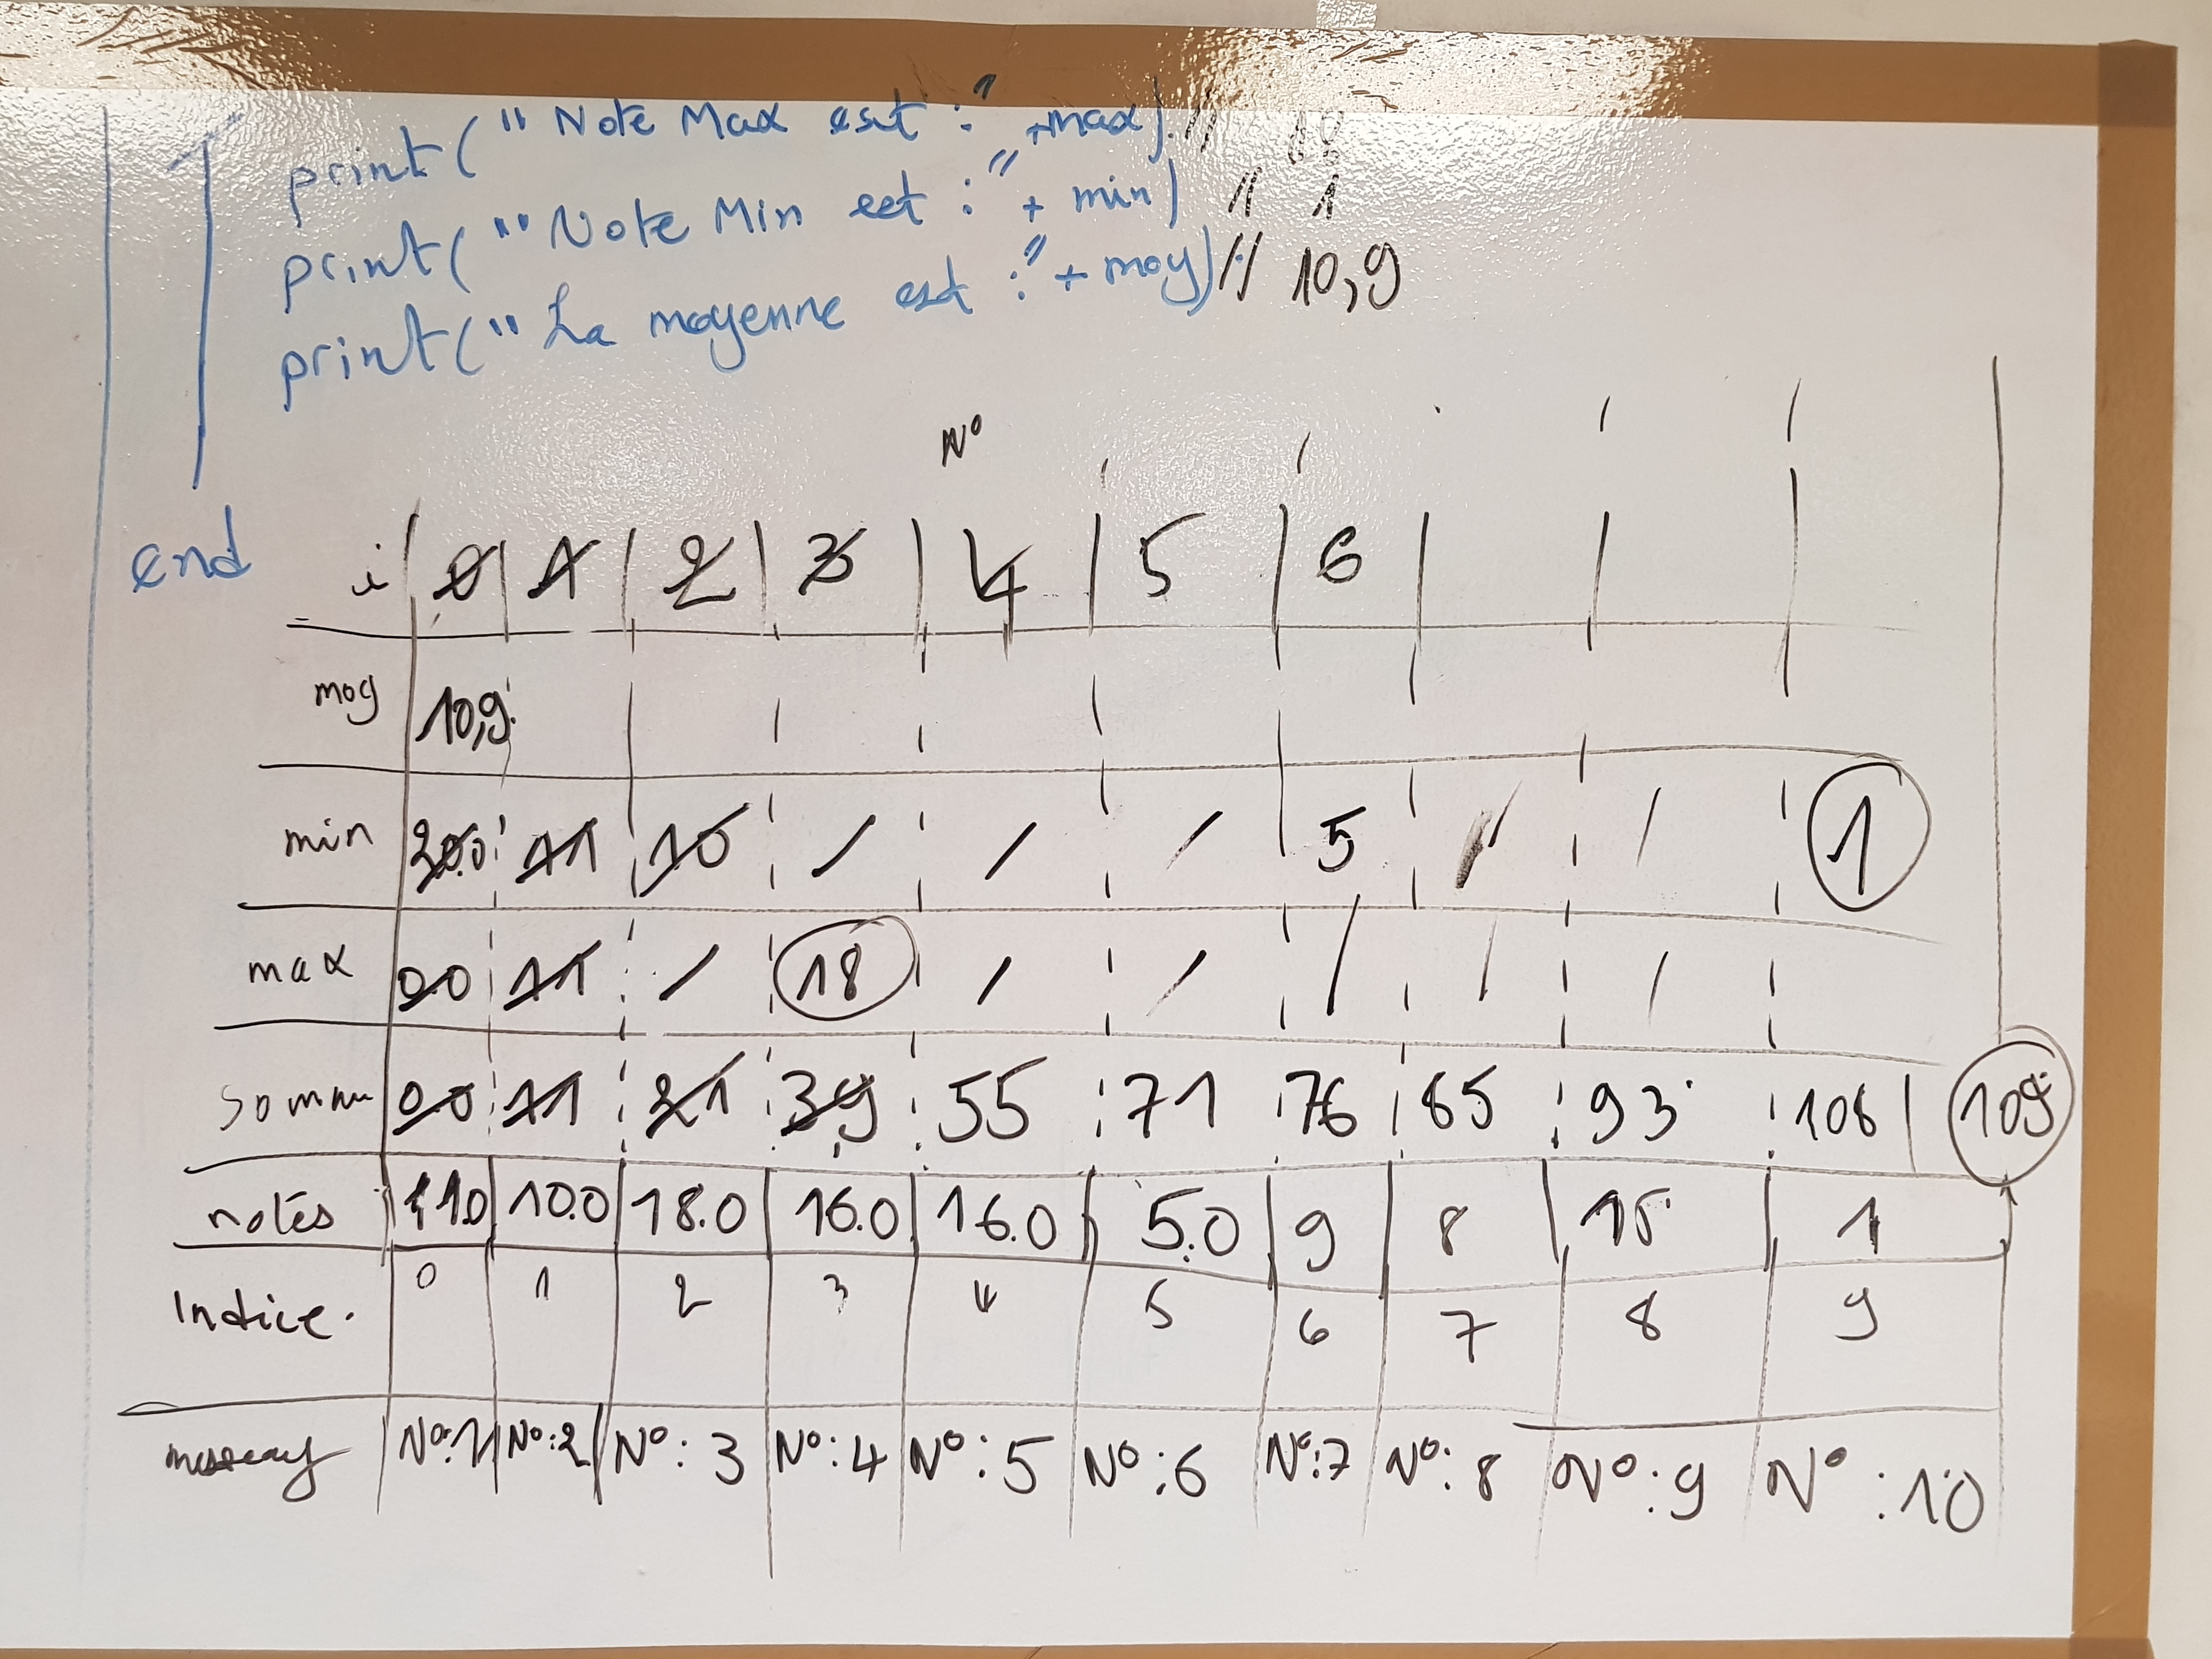 print(" Note Max est : " +max). // 18
print(" Note Min est : " + min) // 1
print(" La moyenne est : " + moy) // 10,9
N°
end
i 0 1 2 3 4 5 6
moy 10,9
min 20.0 11 10 / / / 5 / / 1
max 0.0 11 / 18 / / / / /
somme 0.0 11 21 39 55 71 76 85 93 108 109
notes 11.0 10.0 18.0 16.0 16.0 5.0 9 8 15 1
Indice. 0 1 2 3 4 5 6 7 8 9
N°:1 N°:2 N°:3 N°:4 N°:5 N°:6 N°:7 N°:8 N°:9 N°:10